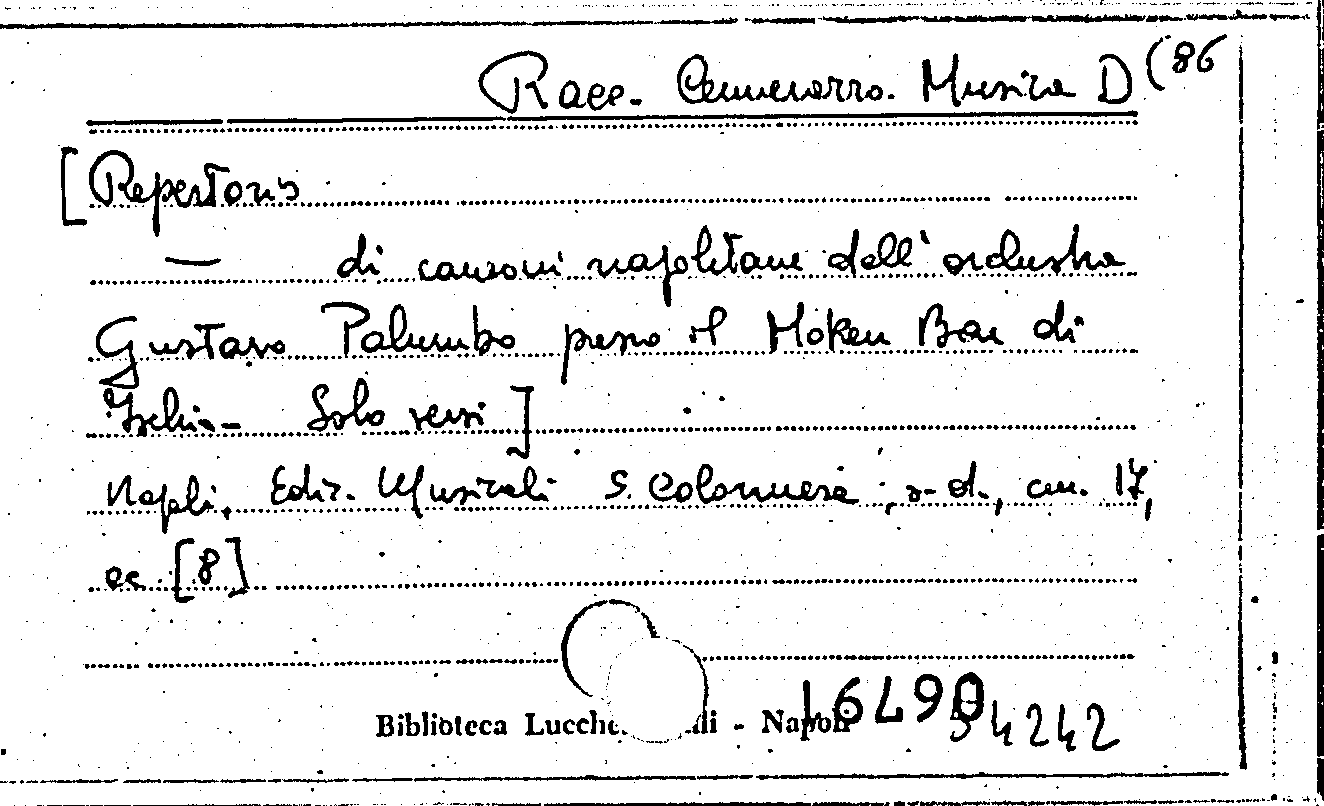 Racc. Cennerazzo. Musica D (86
[Repertorio
— di canzoni napoletane dell'orchestra
Gustavo Palumbo presso il Moken Bar di
Ischia - Solo versi]
Napoli, Ediz. Musicali S. Colonnese, s.d., cm. 17,
cc [8]
Biblioteca Lucche di - Napoli